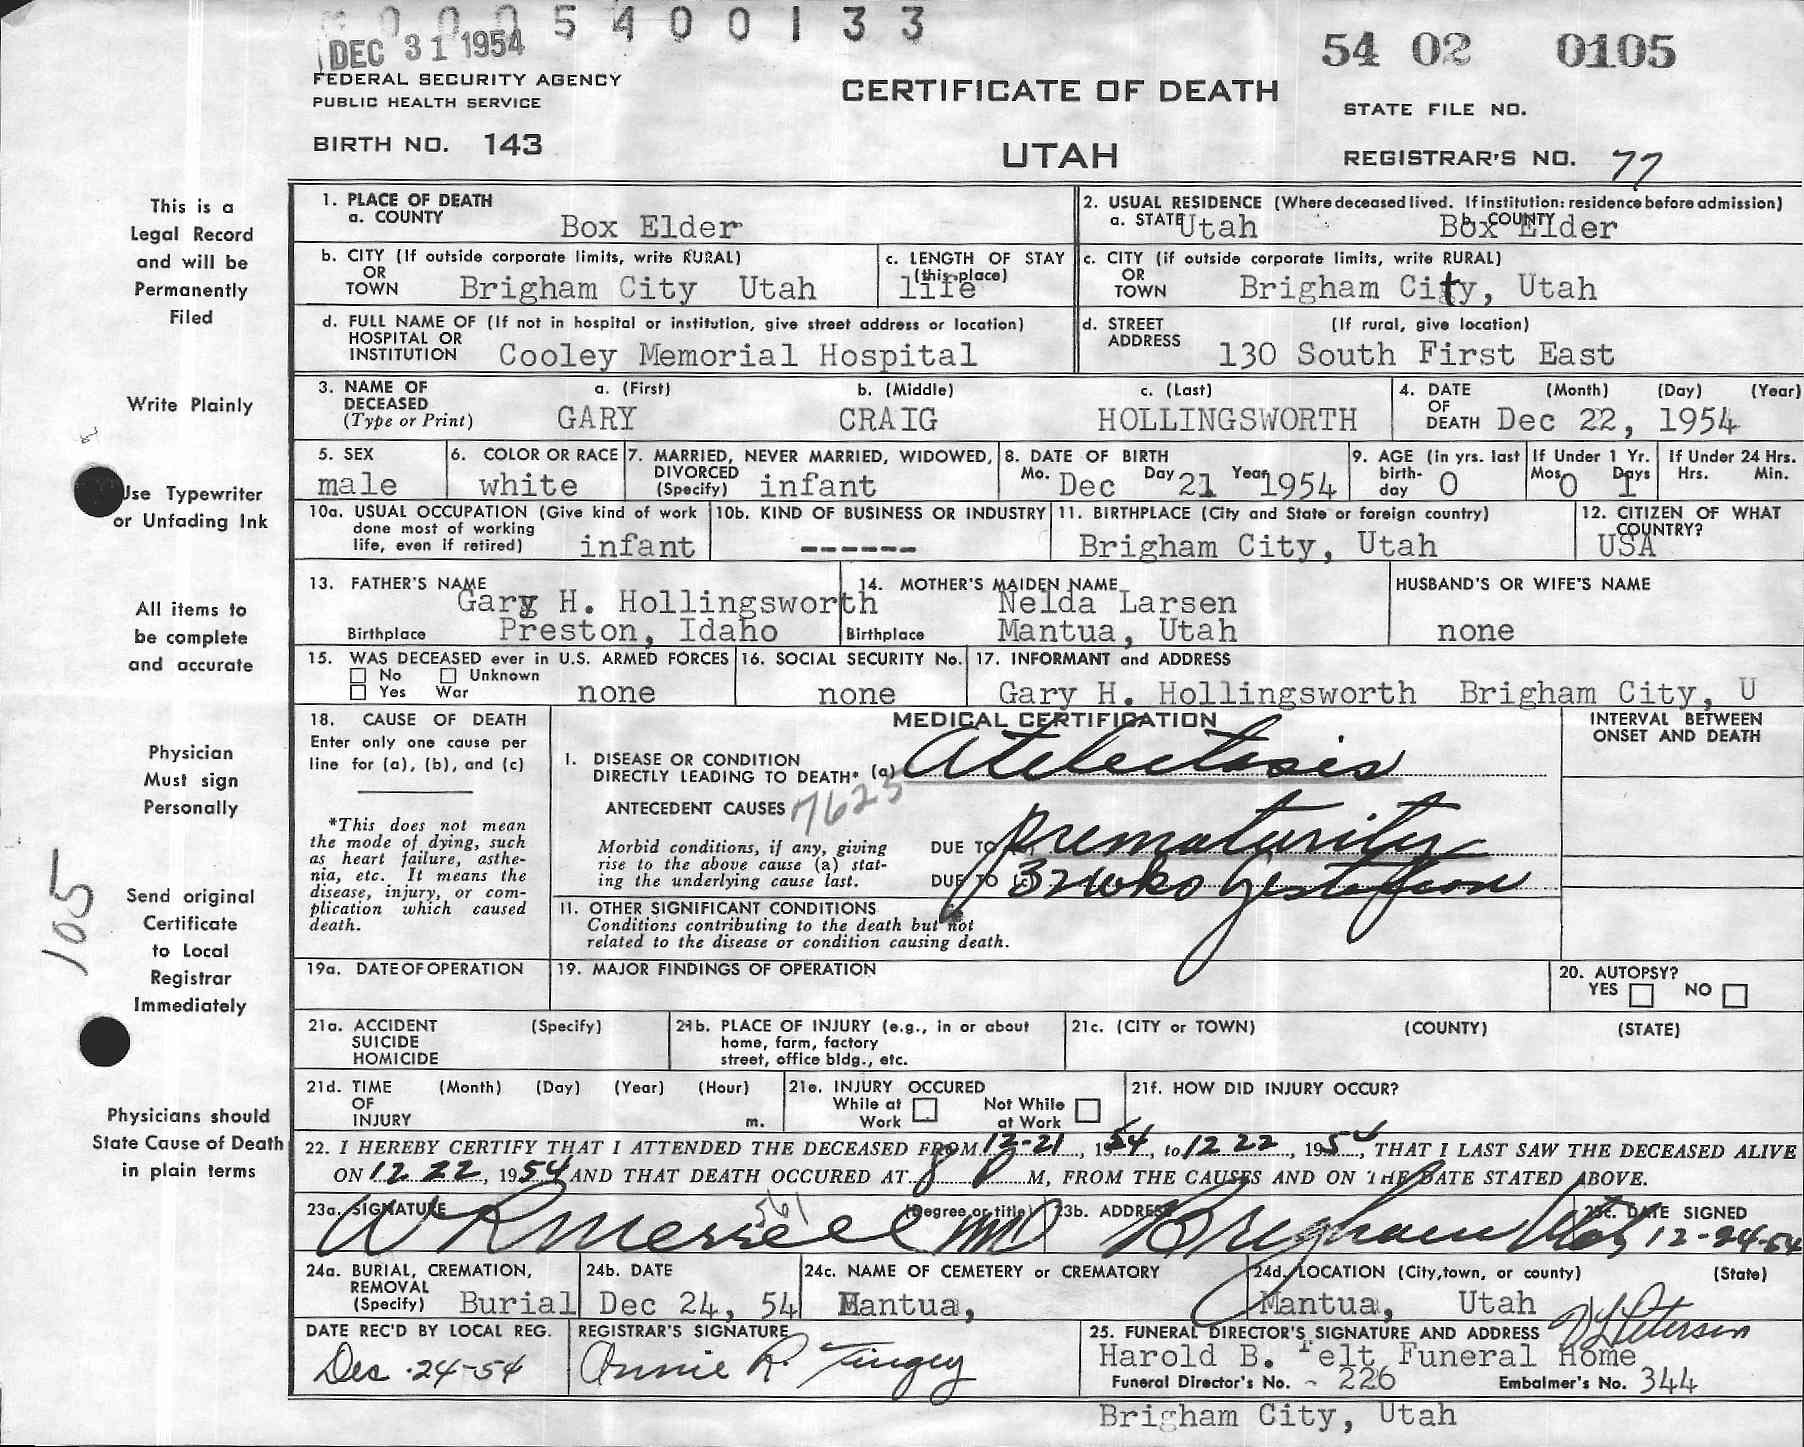 0005400133
DEC 31 1954
54 02 0105
FEDERAL SECURITY AGENCY
PUBLIC HEALTH SERVICE
CERTIFICATE OF DEATH
STATE FILE NO.
BIRTH NO. 143
UTAH
REGISTRAR'S NO. 77
This is a
Legal Record
and will be
Permanently
Filed
Write Plainly
Use Typewriter
or Unfading Ink
All items to
be complete
and accurate
Physician
Must sign
Personally
105
Send original
Certificate
to Local
Registrar
Immediately
Physicians should
State Cause of Death
in plain terms
1. PLACE OF DEATH
a. COUNTY Box Elder
2. USUAL RESIDENCE (Where deceased lived. If institution: residence before admission)
a. STATE Utah b. COUNTY Box Elder
b. CITY (If outside corporate limits, write RURAL)
OR
TOWN Brigham City Utah
c. LENGTH OF STAY
(this place)
life
c. CITY (if outside corporate limits, write RURAL)
OR
TOWN Brigham City, Utah
d. FULL NAME OF (If not in hospital or institution, give street address or location)
HOSPITAL OR
INSTITUTION Cooley Memorial Hospital
d. STREET (If rural, give location)
ADDRESS 130 South First East
3. NAME OF a. (First) b. (Middle) c. (Last)
DECEASED
(Type or Print) GARY CRAIG HOLLINGSWORTH
4. DATE (Month) (Day) (Year)
OF
DEATH Dec 22, 1954
5. SEX
male
6. COLOR OR RACE
white
7. MARRIED, NEVER MARRIED, WIDOWED,
DIVORCED
(Specify) infant
8. DATE OF BIRTH
Mo. Dec Day 21 Year 1954
9. AGE (in yrs. last
birth-
day 0
If Under 1 Yr.
Mos 0 Days 1
If Under 24 Hrs.
Hrs. Min.
10a. USUAL OCCUPATION (Give kind of work
done most of working
life, even if retired) infant
10b. KIND OF BUSINESS OR INDUSTRY
------
11. BIRTHPLACE (City and State or foreign country)
Brigham City, Utah
12. CITIZEN OF WHAT
COUNTRY?
USA
13. FATHER'S NAME
Gary H. Hollingsworth
Birthplace Preston, Idaho
14. MOTHER'S MAIDEN NAME
Nelda Larsen
Birthplace Mantua, Utah
HUSBAND'S OR WIFE'S NAME
none
15. WAS DECEASED ever in U.S. ARMED FORCES
No Unknown
Yes War none
16. SOCIAL SECURITY No.
none
17. INFORMANT and ADDRESS
Gary H. Hollingsworth Brigham City, U
18. CAUSE OF DEATH
Enter only one cause per
line for (a), (b), and (c)
*This does not mean
the mode of dying, such
as heart failure, asthe-
nia, etc. It means the
disease, injury, or com-
plication which caused
death.
MEDICAL CERTIFICATION
INTERVAL BETWEEN
ONSET AND DEATH
I. DISEASE OR CONDITION
DIRECTLY LEADING TO DEATH* (a) Atelectasis
ANTECEDENT CAUSES 7625
Morbid conditions, if any, giving
rise to the above cause (a) stat-
ing the underlying cause last.
DUE TO prematurity
DUE TO 32 wks gestation
II. OTHER SIGNIFICANT CONDITIONS
Conditions contributing to the death but not
related to the disease or condition causing death.
19a. DATE OF OPERATION
19. MAJOR FINDINGS OF OPERATION
20. AUTOPSY?
YES NO
21a. ACCIDENT (Specify)
SUICIDE
HOMICIDE
21b. PLACE OF INJURY (e.g., in or about
home, farm, factory
street, office bldg., etc.
21c. (CITY or TOWN) (COUNTY) (STATE)
21d. TIME (Month) (Day) (Year) (Hour)
OF
INJURY m.
21e. INJURY OCCURED
While at Not While
Work at Work
21f. HOW DID INJURY OCCUR?
22. I HEREBY CERTIFY THAT I ATTENDED THE DECEASED FROM 12-21, 1954, to 12 22, 1954, THAT I LAST SAW THE DECEASED ALIVE
ON 12 22, 1954 AND THAT DEATH OCCURED AT 8 P M, FROM THE CAUSES AND ON THE DATE STATED ABOVE.
23a. SIGNATURE (Degree or title)
W R Merrell MD
561
23b. ADDRESS
Brigham Utah
23c. DATE SIGNED
12-24-54
24a. BURIAL, CREMATION,
REMOVAL
(Specify) Burial
24b. DATE
Dec 24, 54
24c. NAME OF CEMETERY or CREMATORY
Mantua,
24d. LOCATION (City, town, or county) (State)
Mantua, Utah
DATE REC'D BY LOCAL REG.
Dec. 24-54
REGISTRAR'S SIGNATURE
Annie R. Tingey
25. FUNERAL DIRECTOR'S SIGNATURE AND ADDRESS Petersen
Harold B. Felt Funeral Home
Funeral Director's No. - 226 Embalmer's No. 344
Brigham City, Utah